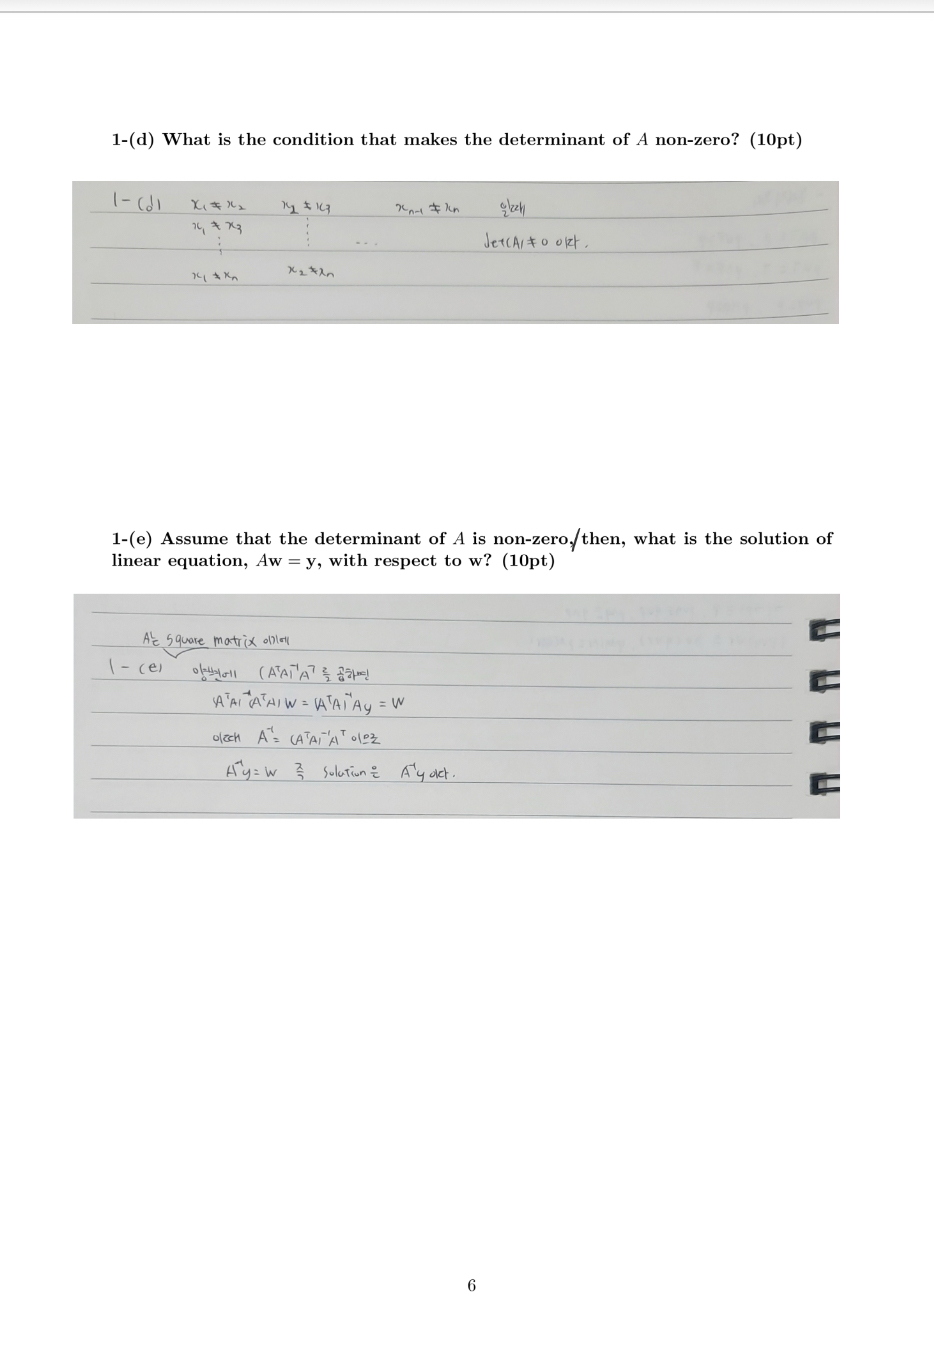 1-(d) What is the condition that makes the determinant of A non-zero? (10pt)
1-(d) x₁ ≠ x₂ x₂ ≠ x₃ xₙ₋₁ ≠ xₙ 일때
x₁ ≠ x₃
⋮ ⋮ ... det(A) ≠ 0 이다.
x₁ ≠ xₙ x₂ ≠ xₙ
1-(e) Assume that the determinant of A is non-zero, then, what is the solution of
linear equation, Aw = y, with respect to w? (10pt)
A는 square matrix 이기에
1-(e) 양변에 (AᵀA)⁻¹Aᵀ를 곱하면
(AᵀA)⁻¹(AᵀA)W = (AᵀA)⁻¹Ay = W
이때 A⁻¹ = (AᵀA)⁻¹Aᵀ 이므로
A⁻¹y = W 즉 Solution은 A⁻¹y 이다.
6